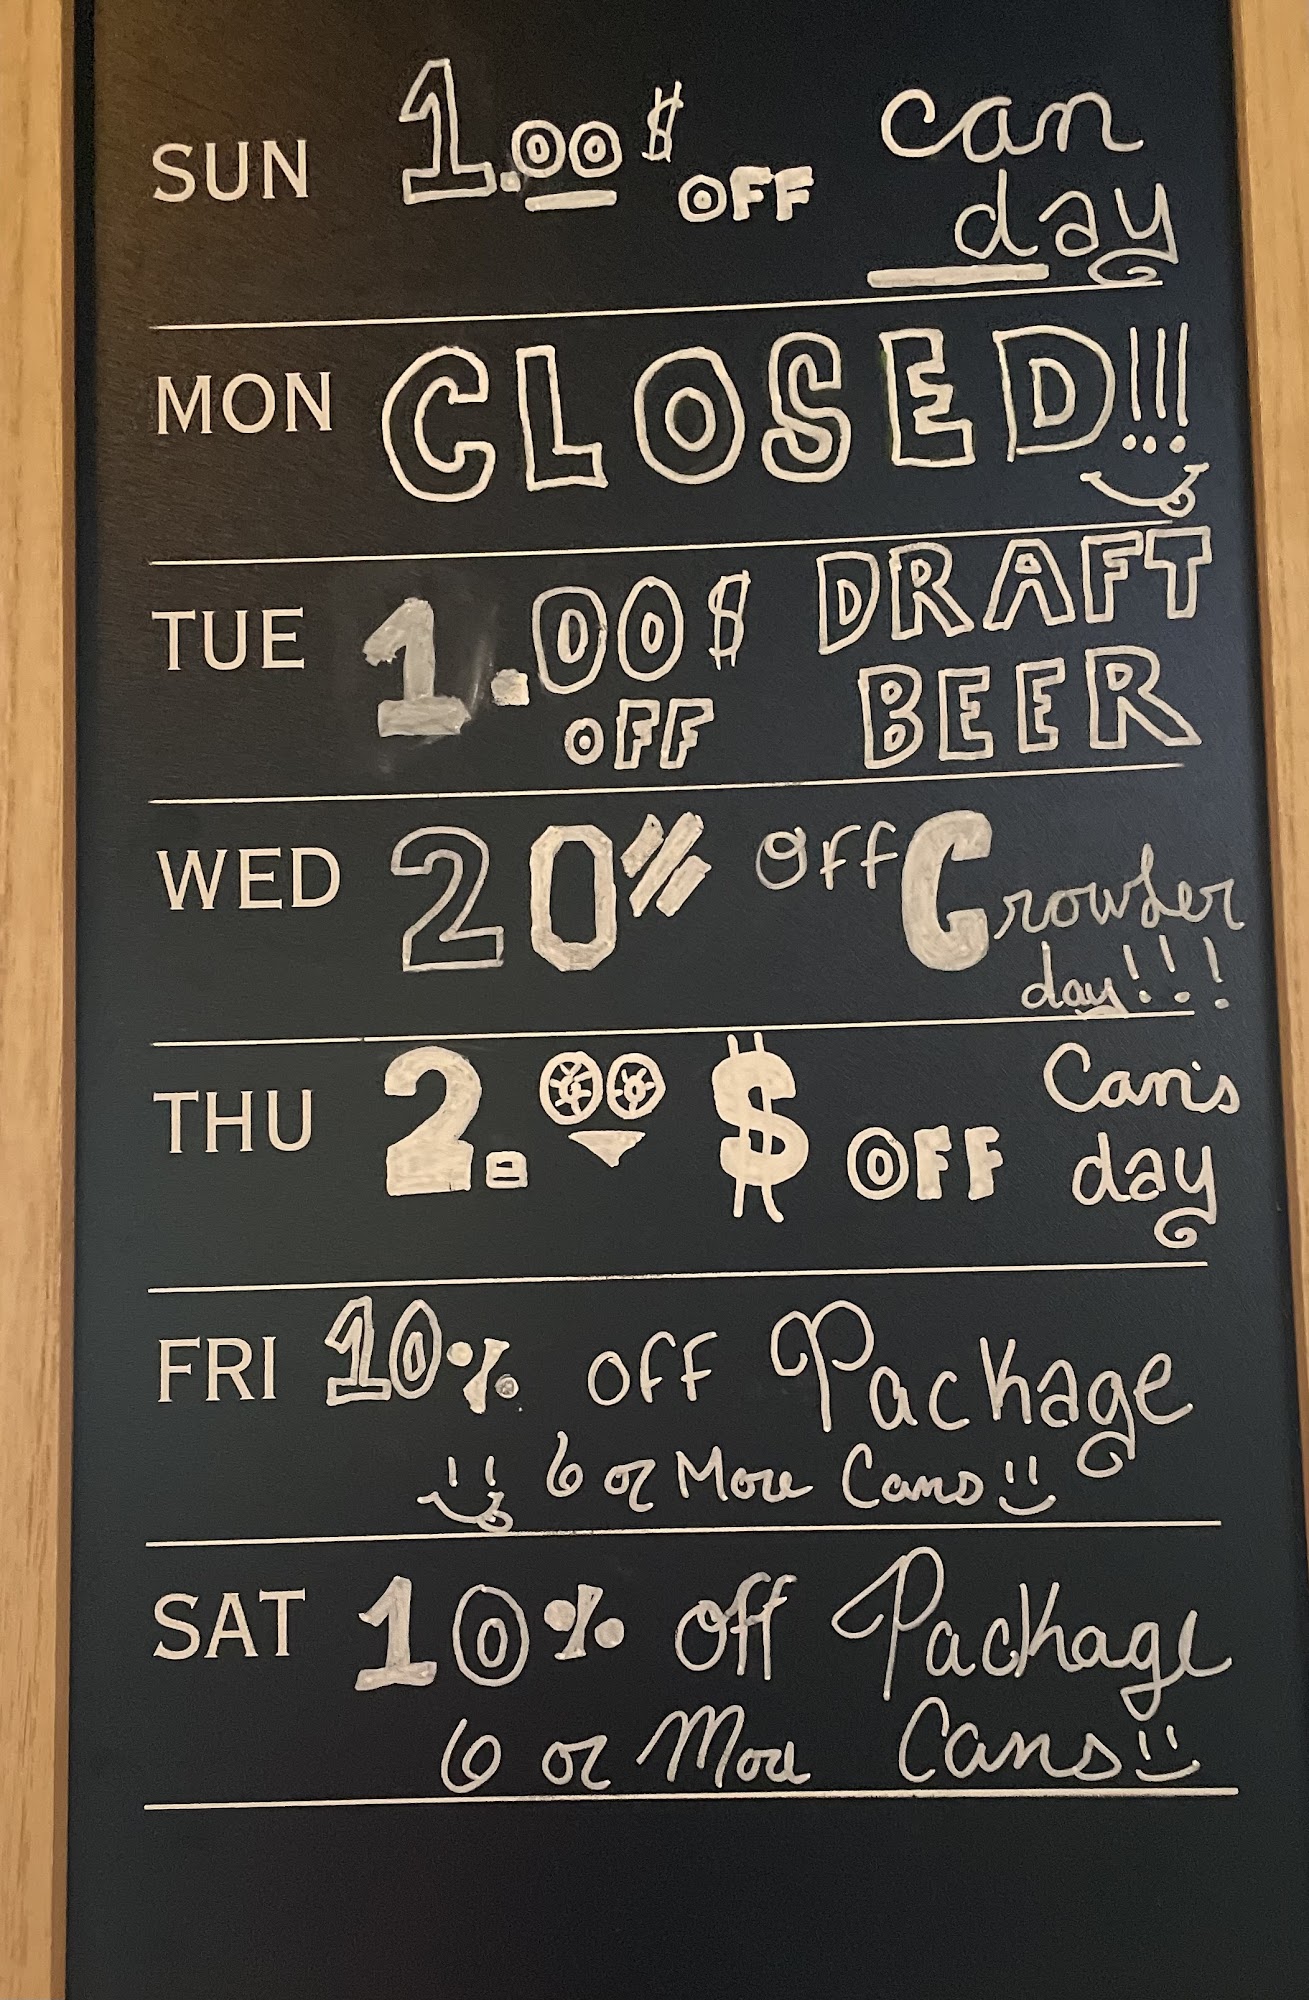 SUN 1.00$ OFF can
day
MON CLOSED!!!
TUE 1.00$ DRAFT
OFF BEER
WED 20% OFF Crowler
day!!!
THU 2.00$ OFF Can's
day
FRI 10% OFF Package
6 or More Cans
SAT 10% off Package
6 or More Cans